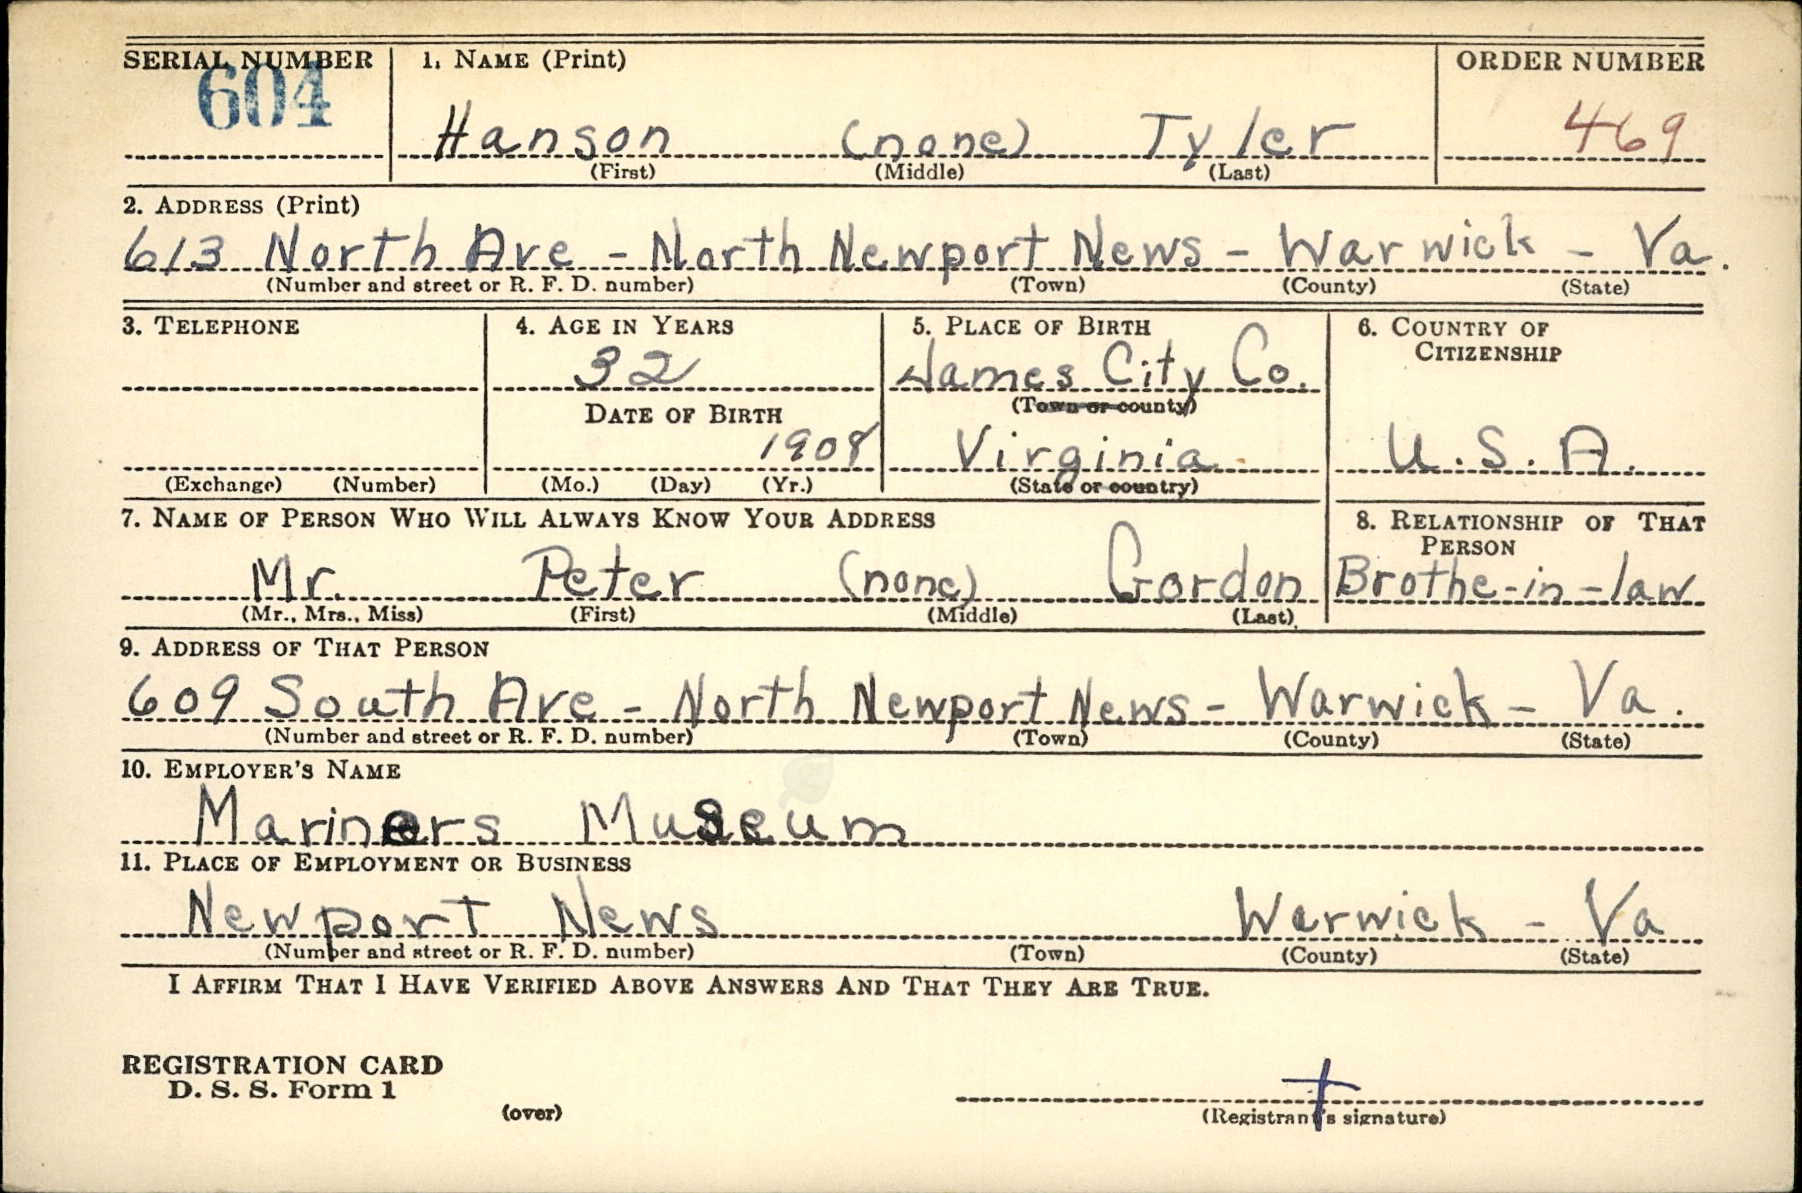 SERIAL NUMBER 1. NAME (Print) ORDER NUMBER
604
Hanson (none) Tyler 469
(First) (Middle) (Last)
2. ADDRESS (Print)
613 North Ave - North Newport News - Warwick - Va.
(Number and street or R. F. D. number) (Town) (County) (State)
3. TELEPHONE 4. AGE IN YEARS 5. PLACE OF BIRTH 6. COUNTRY OF
CITIZENSHIP
32 James City Co.
(Town or county)
DATE OF BIRTH
1908 Virginia U.S.A.
(Exchange) (Number) (Mo.) (Day) (Yr.) (State or country)
7. NAME OF PERSON WHO WILL ALWAYS KNOW YOUR ADDRESS 8. RELATIONSHIP OF THAT
PERSON
Mr. Peter (none) Gordon Brothe-in-law
(Mr., Mrs., Miss) (First) (Middle) (Last)
9. ADDRESS OF THAT PERSON
609 South Ave - North Newport News - Warwick - Va.
(Number and street or R. F. D. number) (Town) (County) (State)
10. EMPLOYER'S NAME
Mariners Museum
11. PLACE OF EMPLOYMENT OR BUSINESS
Newport News Warwick - Va
(Number and street or R. F. D. number) (Town) (County) (State)
I AFFIRM THAT I HAVE VERIFIED ABOVE ANSWERS AND THAT THEY ARE TRUE.
REGISTRATION CARD
D. S. S. Form 1
(over) (Registrant's signature)